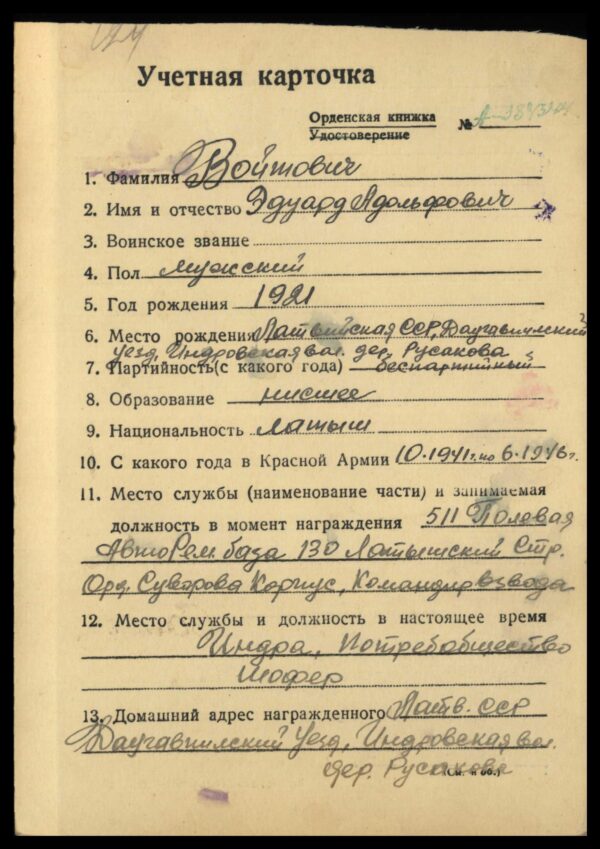 Учетная карточка
Орденская книжка
Удостоверение №
1. Фамилия Войтович
2. Имя и отчество Эдуард Адольфович
3. Воинское звание
4. Пол мужский
5. Год рождения 1921
6. Место рождения Латвийская ССР, Даугавпилский
уезд, Индровская вол. дер. Русакова
7. Партийность(с какого года) беспартийный
8. Образование нисшее
9. Национальность латыш
10. С какого года в Красной Армии 10.1941г. по 6.1946г.
11. Место службы (наименование части) и занимаемая
должность в момент награждения 511 Полевая
АвтоРем. база 130 Латышский Стр.
Орд. Суворова Корпус, Командир взвода
12. Место службы и должность в настоящее время
Индра, Потребобщество
шофер
13. Домашний адрес награжденного Латв. ССР
Даугавпилский уезд, Индровская вол.
дер. Русакова (См. н об.)